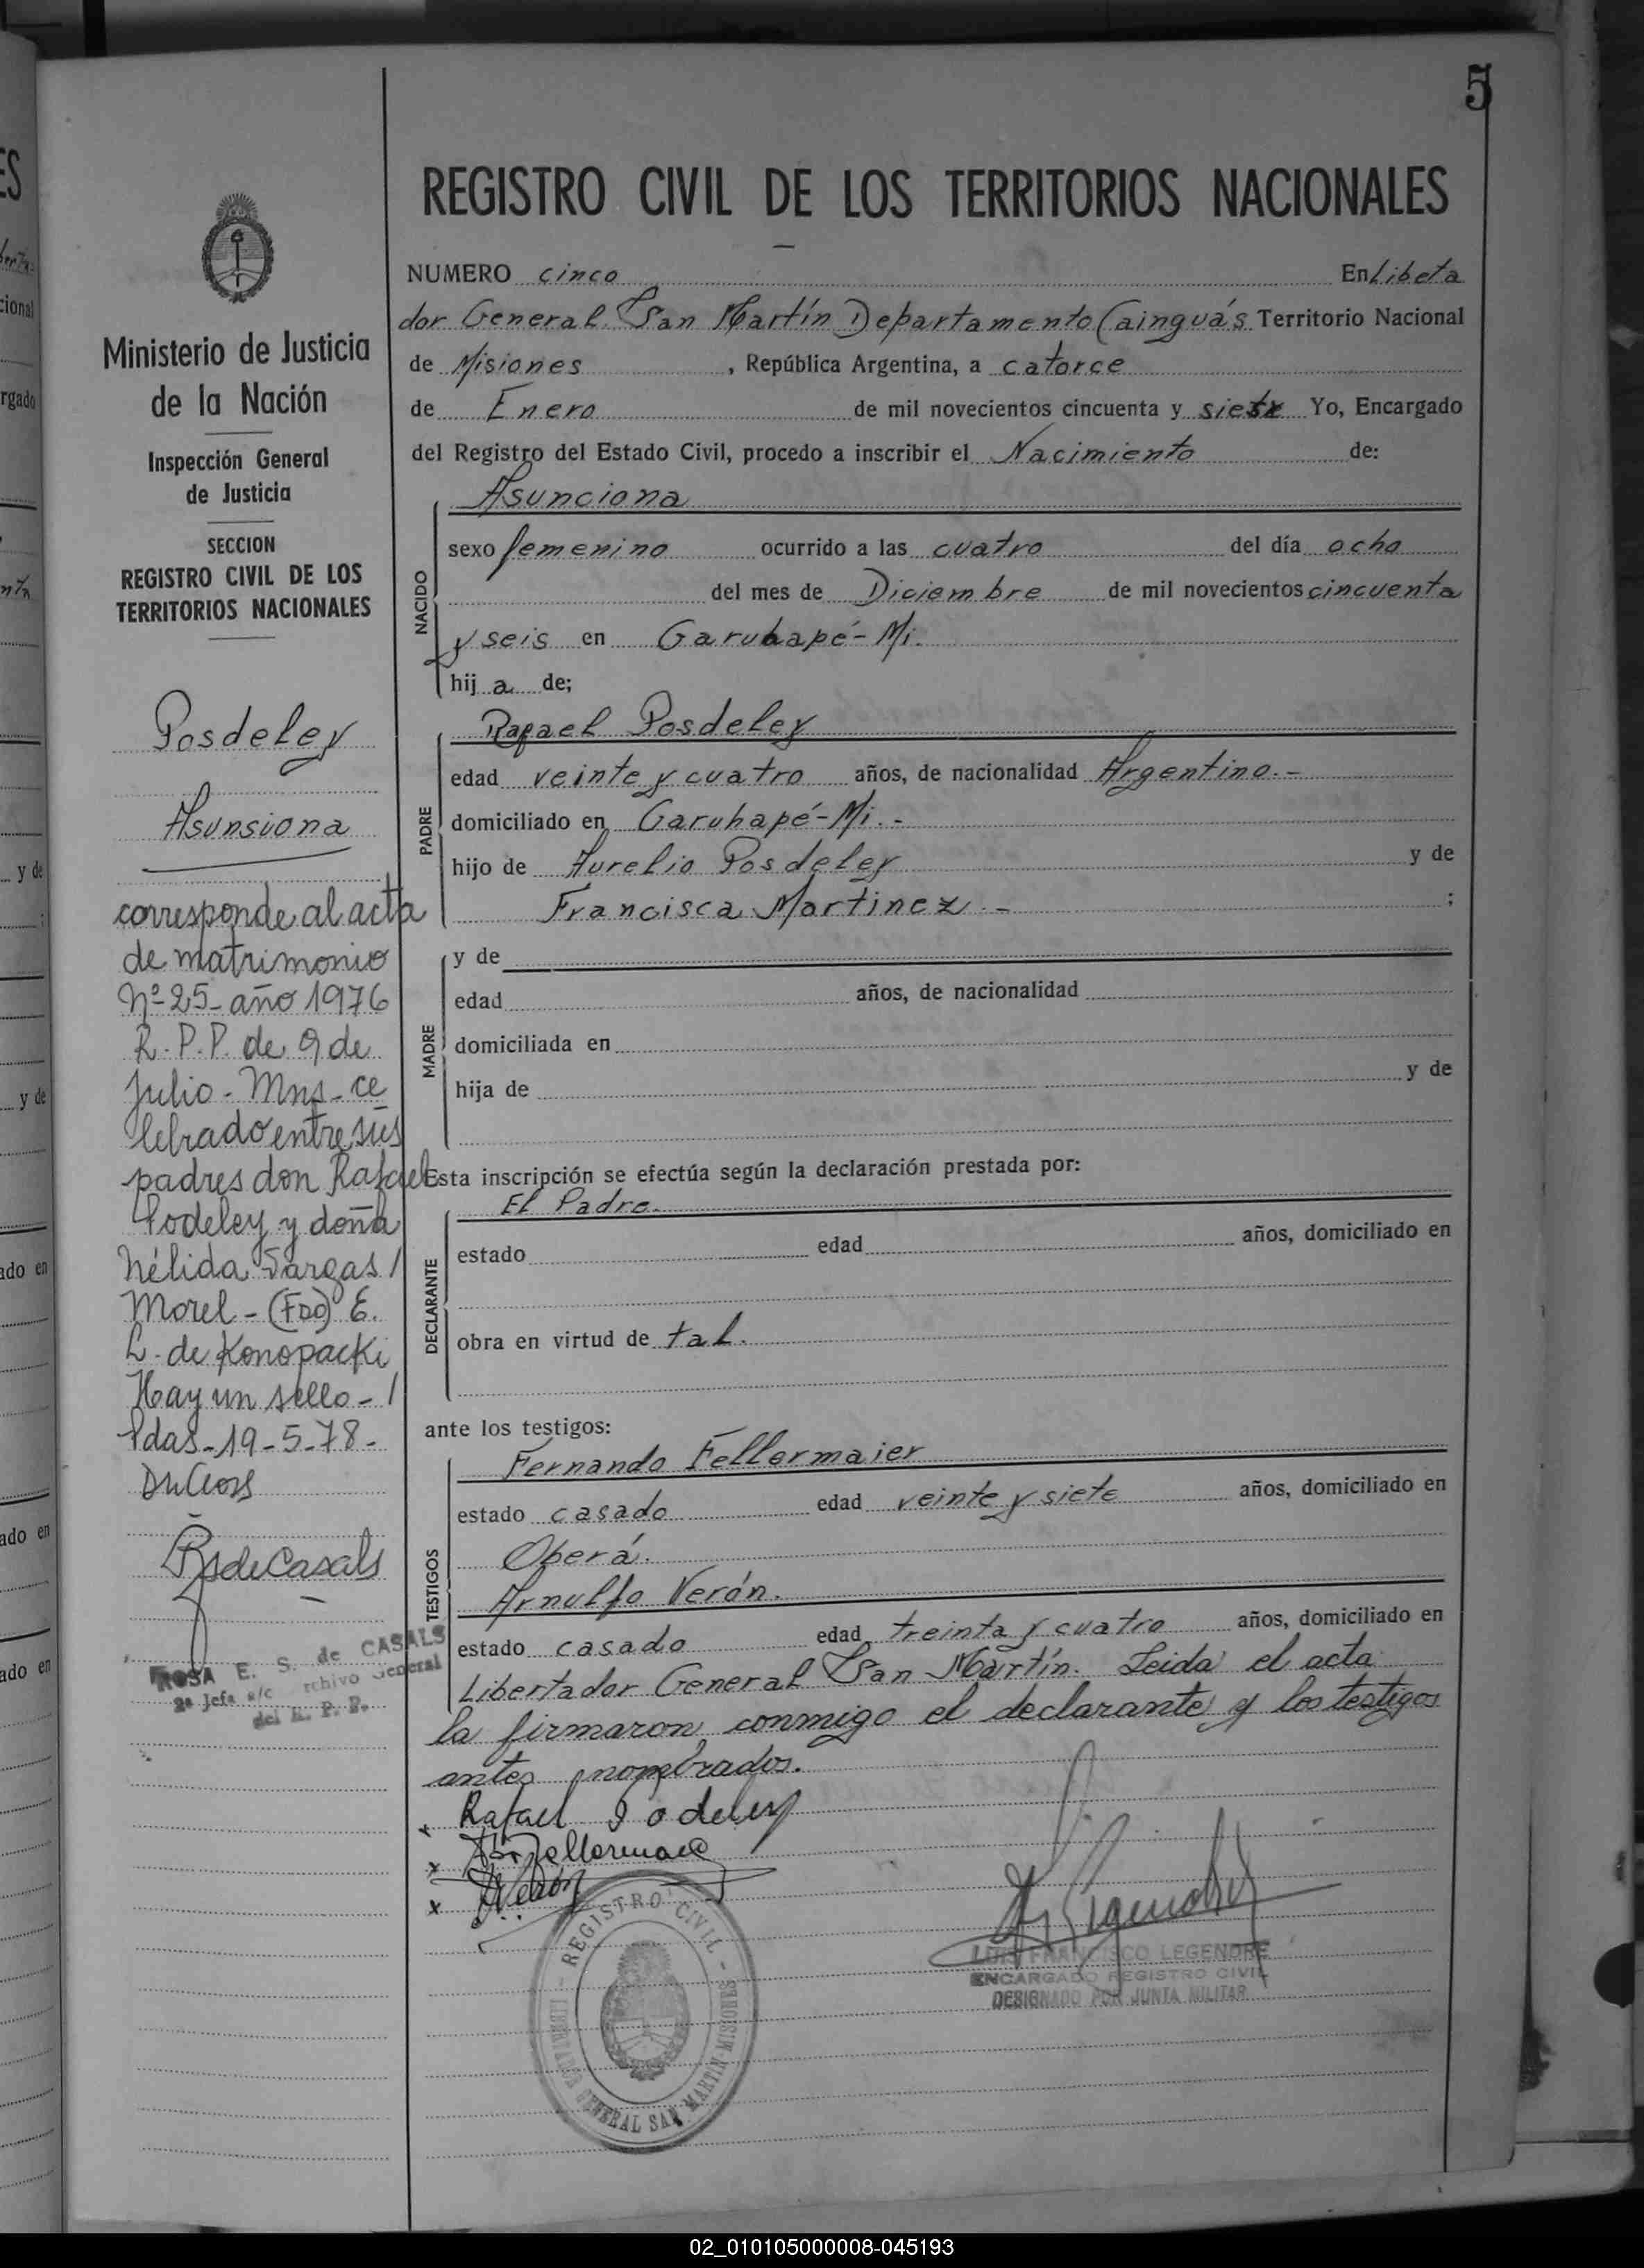 5
REGISTRO CIVIL DE LOS TERRITORIOS NACIONALES
Ministerio de Justicia
de la Nación
Inspección General
de Justicia
SECCION
REGISTRO CIVIL DE LOS
TERRITORIOS NACIONALES
Posdeley
Asunsiona
corresponde al acta
de matrimonio
Nº 25 - año 1976
R. P. P. de 9 de
Julio - Mns - ce
lebrado entre sus
padres don Rafael
Podeley y doña
Nélida Vargas /
Morel - (Fdo) E.
L. de Konopacki
Hay un sello - /
Pdas - 19 - 5 - 78 -
RSdeCasals
ROSA E. S. de CASALS
2ª Jefa a/c Archivo General
del R. P. P.
NUMERO cinco En Libeta
dor General San Martín Departamento Cainguás Territorio Nacional
de Misiones , República Argentina, a catorce
de Enero de mil novecientos cincuenta y siete Yo, Encargado
del Registro del Estado Civil, procedo a inscribir el Nacimiento de:
NACIDO
Asunciona
sexo femenino ocurrido a las cuatro del día ocho
del mes de Diciembre de mil novecientos cincuenta
y seis en Garuhapé - Mi.
hij a de;
PADRE
Rafael Posdeley
edad veinte y cuatro años, de nacionalidad Argentino. -
domiciliado en Garuhapé - Mi. -
hijo de Aurelio Posdeley y de
Francisca Martinez. - ;
MADRE
y de
edad años, de nacionalidad
domiciliada en
hija de y de
Esta inscripción se efectúa según la declaración prestada por:
DECLARANTE
El Padre.
estado edad años, domiciliado en
obra en virtud de tal.
ante los testigos:
TESTIGOS
Fernando Fellermaier
estado casado edad veinte y siete años, domiciliado en
Oberá.
Arnulfo Verón.
estado casado edad treinta y cuatro años, domiciliado en
Libertador General San Martín. Leida el acta
la firmaron, conmigo el declarante y los testigos
antes nombrados.
x Rafael Podeley
x Fellermaier
x AVerón
REGISTRO CIVIL
LIBERTADOR GENERAL SAN MARTIN - MISIONES
LUIS FRANCISCO LEGENDRE
ENCARGADO REGISTRO CIVIL
DESIGNADO POR JUNTA MILITAR
02_010105000008-045193